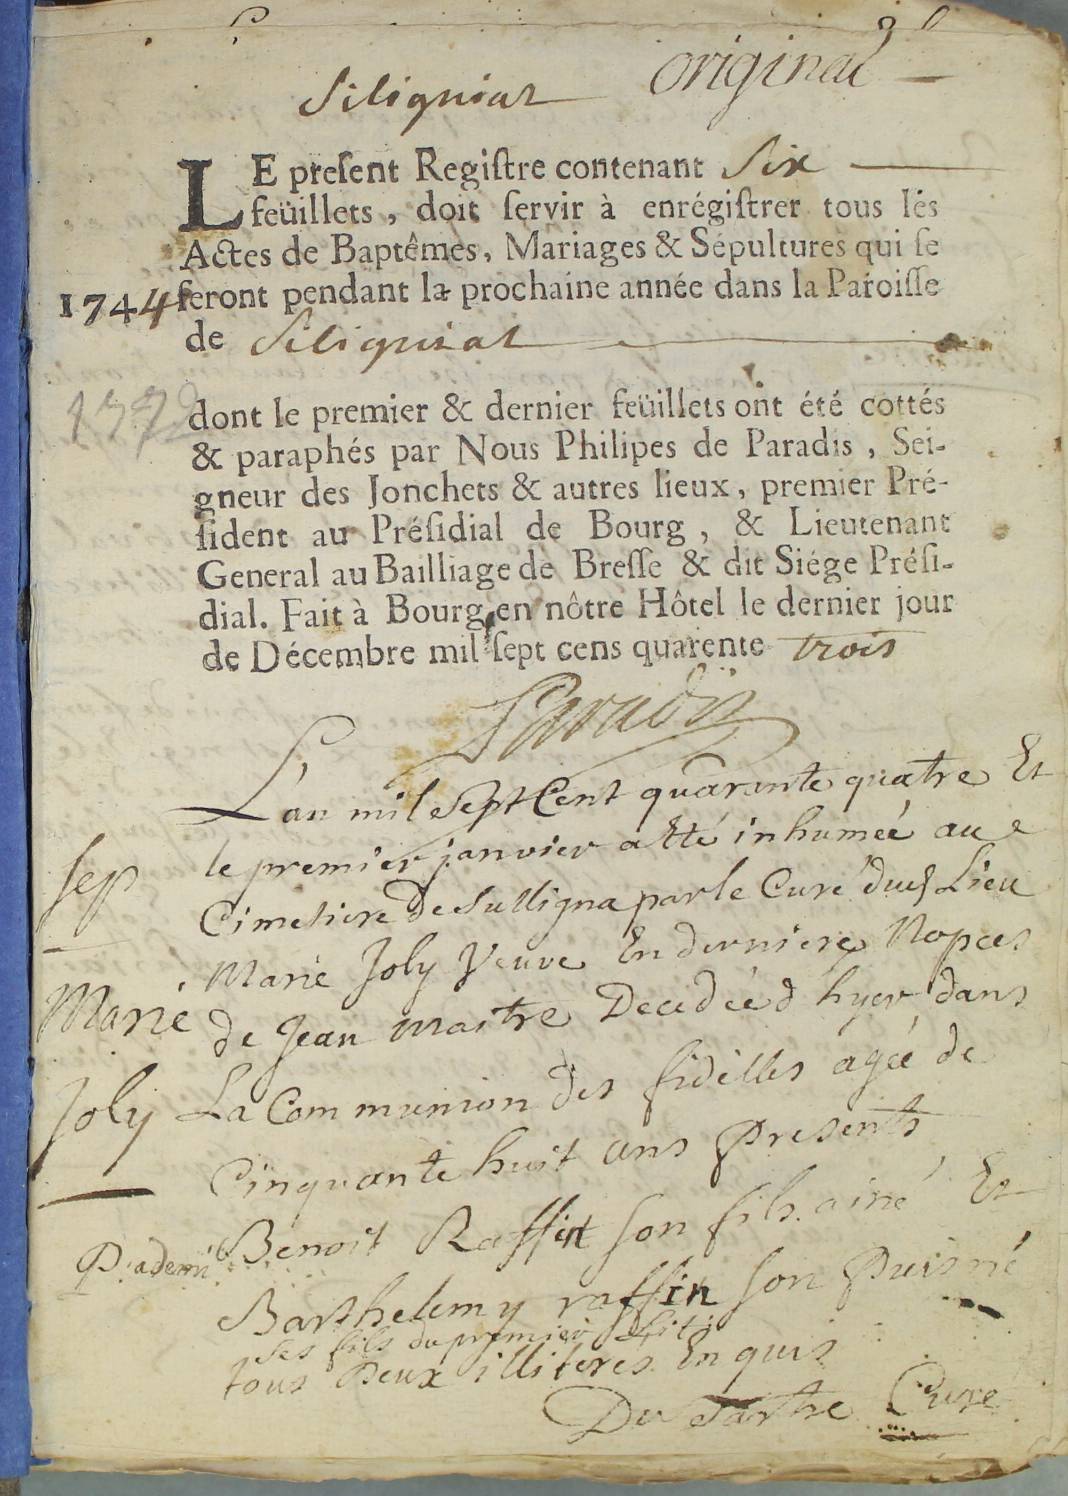 Siligniat original
LE present Registre contenant Six
feüillets, doit servir à enrégistrer tous les
Actes de Baptêmes, Mariages & Sépultures qui se
1744 feront pendant la prochaine année dans la Paroisse
de Siligniat
dont le premier & dernier feüillets ont été cottés
& paraphés par Nous Philipes de Paradis, Sei-
gneur des Jonchets & autres lieux, premier Pré-
sident au Présidial de Bourg, & Lieutenant
General au Bailliage de Bresse & dit Siége Prési-
dial. Fait à Bourg en nôtre Hôtel le dernier jour
de Décembre mil sept cens quarente trois
Paradis
L'an mil sept Cent quarante quatre Et
le premier janvier a êtté inhumée au
Cimetiere de Sulligna par le Curé dud Lieu
Marie Joly Veuve En derniere Nopces
de Jean Maitre Decedée d hyer dans
La Communion des fidelles agée de
Cinquante huit ans Presents
Benoit Raffin son fils ainé Et
Barthelemy raffin son Puisné
ses fils du premier lit
tous Deux illiteres Enquis
Du Tartre Curé
sep
Marie
Joly